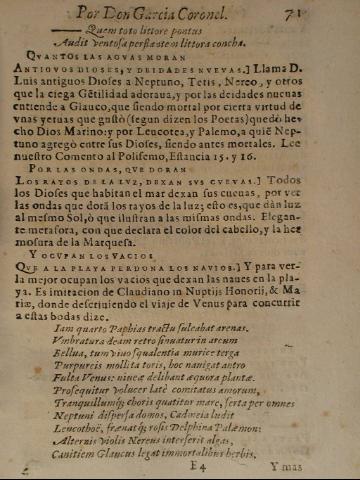 Por Don Garcia Coronel. 71
— Quem toto littore pontus
Audit ventosa perflantem littora concha.
QVANTOS LAS AGVAS MORAN
ANTIGVOS DIOSES, Y DEIDADES NVEVAS.] Llama D.
Luis antiguos Dioses a Neptuno, Tetis, Nereo, y otros
que la ciega Gẽtilidad adoraua, y por las deidades nueuas
entiende a Glauco, que siendo mortal por cierta virtud de
vnas yeruas que gustò (segun dizen los Poetas) quedò he-
cho Dios Marino: y por Leucotea, y Palemo, a quiẽ Nep-
tuno agregò entre sus Dioses, siendo antes mortales. Lee
nuestro Comento al Polifemo, Estancia 15. y 16.
POR LAS ONDAS, QVE DORAN
LOS RAYOS DE LA LVZ, DEXAN SVS CVEVAS.] Todos
los Dioses que habitan el mar dexan sus cueuas, por ver
las ondas que dorã los rayos de la luz; esto es, que dàn luz
al mesmo Sol, ò que ilustran a las mismas ondas. Elegan-
te metafora, con que declara el color del cabello, y la her
mosura de la Marquesa.
Y OCVPAN LOS VACIOS
QVE A LA PLAYA PERDONA LOS NAVIOS.] Y para ver-
la mejor ocupan los vacios que dexan las naues en la pla-
ya. Es imitacion de Claudiano in Nuptijs Honorij, & Ma
riæ, donde descriuiendo el viaje de Venus para concurrir
a estas bodas dize.
Iam quarto Paphias tractu sulcabat arenas.
Vmbratura deam retro sinuatur in arcum
Bellua, tum viuo squalentia murice terga
Purpureis mollita toris, hoc nauigat antro
Fulta Venus: niueæ delibant æquora plantæ.
Prosequitur volucer latè comitatus amorum,
Tranquillumq; choris quatitur mare, serta per omnes
Neptuni dispersa domos, Cadmeia ludit
Leucothoë, frænatq; rosis Delphina Palæmon:
Alternis violis Nereus interserit algas,
Canitiem Glaucus legat immortalibus herbis.
E 4 Y mas